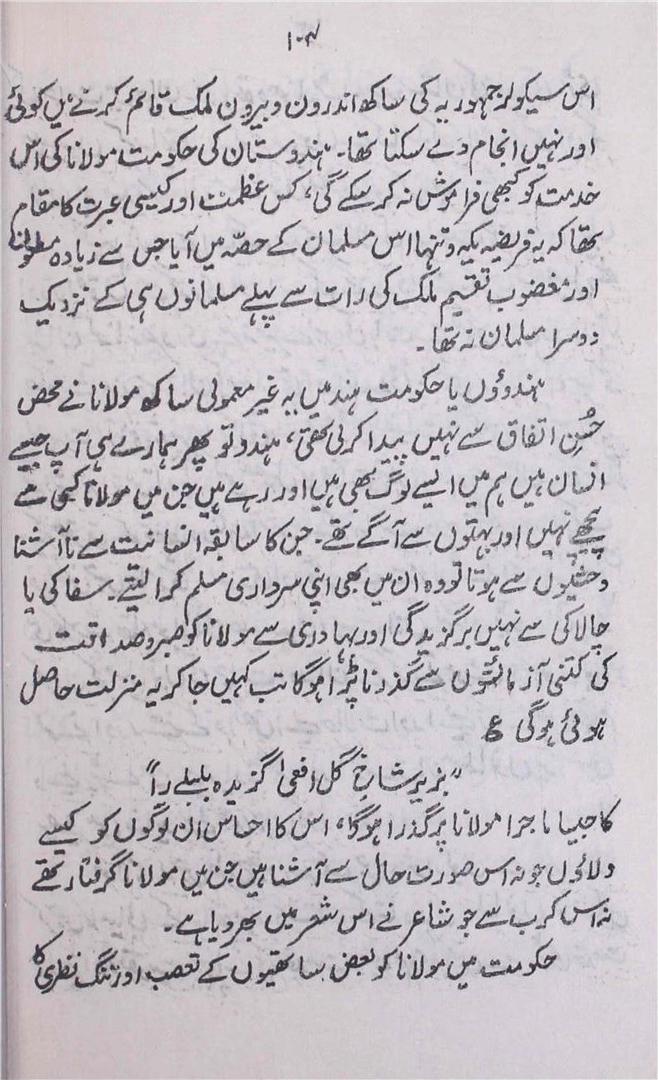 ۱۰۴
اس سیکولر جمہوریہ کی ساکھ اندرون و بیرون ملک قائم کرنے میں کوئی
اور نہیں انجام دے سکتا تھا۔ ہندوستان کی حکومت مولانا کی اس
خدمت کو کبھی فراموش نہ کر سکے گی، کس عظمت اور کیسی عبرت کا مقام
تھا کہ یہ فریضہ یکہ و تنہا اس مسلمان کے حصّہ میں آیا جس سے زیادہ مطعون
اور مغضوب تقسیم ملک کی رات سے پہلے مسلمانوں ہی کے نزدیک
دوسرا مسلمان نہ تھا۔
ہندوؤں یا حکومت ہند میں یہ غیر معمولی ساکھ مولانا نے محض
حُسنِ اتفاق سے نہیں پیدا کر لی تھی، ہندو تو پھر ہمارے ہی آپ جیسے
انسان ہیں ہم میں ایسے لوگ بھی ہیں اور رہے ہیں جن میں مولانا کسی سے
پیچھے نہیں اور بہتوں سے آگے تھے۔ جن کا سابقہ انسانیت سے ناآشنا
وحشیوں سے ہوتا تو وہ ان میں بھی اپنی سرداری مسلم کرا لیتے۔ سفاکی یا
چالاکی سے نہیں برگزیدگی اور بہادری سے مولانا کو صبر و صداقت
کی کتنی آزمائشوں سے گذرنا پڑا ہوگا تب کہیں جا کر یہ منزلت حاصل
ہوئی ہوگی ع
"بزیرِ شاخِ گل افعی گزیدہ بلبلے را"
کا جیسا ماجرا مولانا پر گذرا ہوگا، اس کا احساس ان لوگوں کو کیسے
دلاؤں جو نہ اس صورت حال سے آشنا ہیں جن میں مولانا گرفتار تھے
نہ اس کرب سے جو شاعر نے اس شعر میں بھر دیا ہے۔
حکومت میں مولانا کو بعض ساتھیوں کے تعصب اور تنگ نظری کا